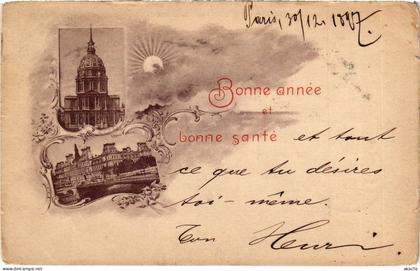 Paris, 30/12 1897.
Bonne année
et
bonne santé et tout
ce que tu désires
toi-même.
Ton Henri.